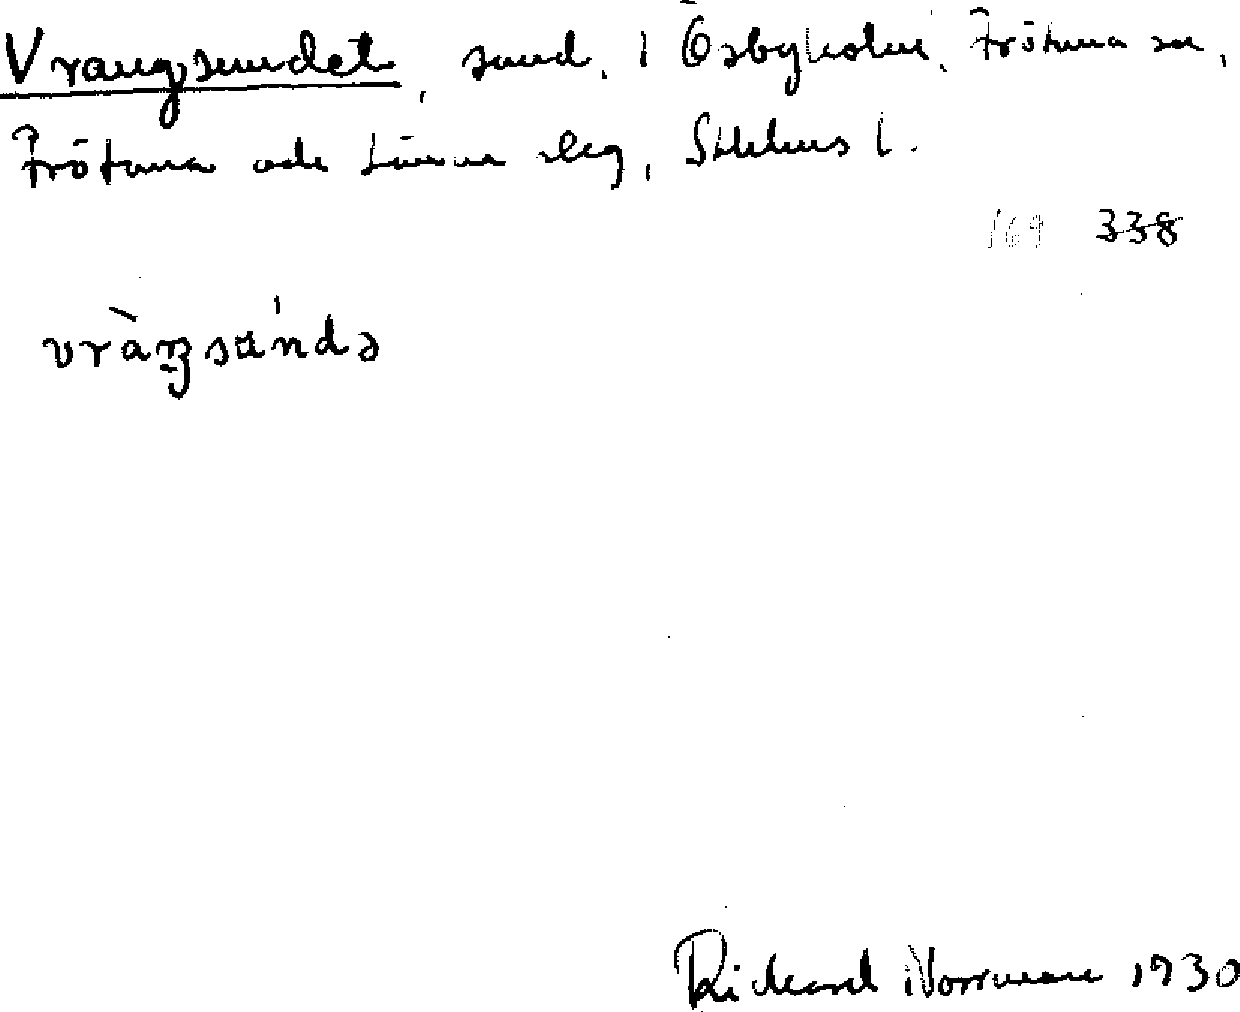 Vrangsundet, sund, i Ösbyholm, Frötuna sn,
Frötuna och Länna slg, Sthlms l.
169 338
vràŋsúndə
Rickard Norrman 1930